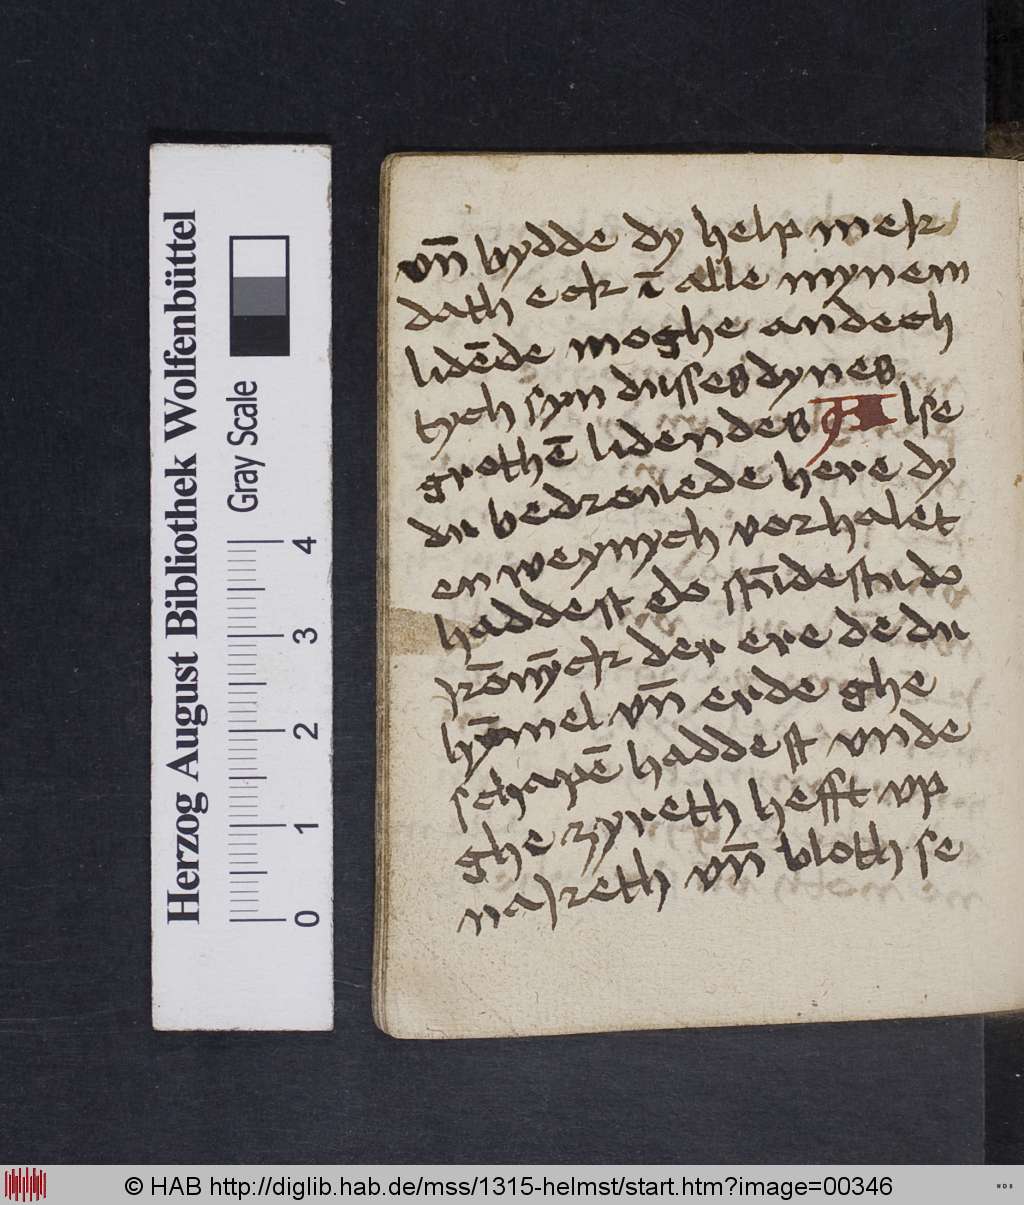 vn̄ bydde dy help mek
dath eck ī alle mynem
lidēde moghe andech
tych syn dusses dynes
grothē lidendes Alse
du bedrouede here dy
en weynych vorhalet
haddest do stūdestu do
konȳck der ere de du
hȳmel vn̄ erde ghe
schapē haddest vnde
ghe zyreth hefft vp
nazreth vn̄ bloth se
Herzog August Bibliothek Wolfenbüttel
Gray Scale
0 1 2 3 4
© HAB http://diglib.hab.de/mss/1315-helmst/start.htm?image=00346